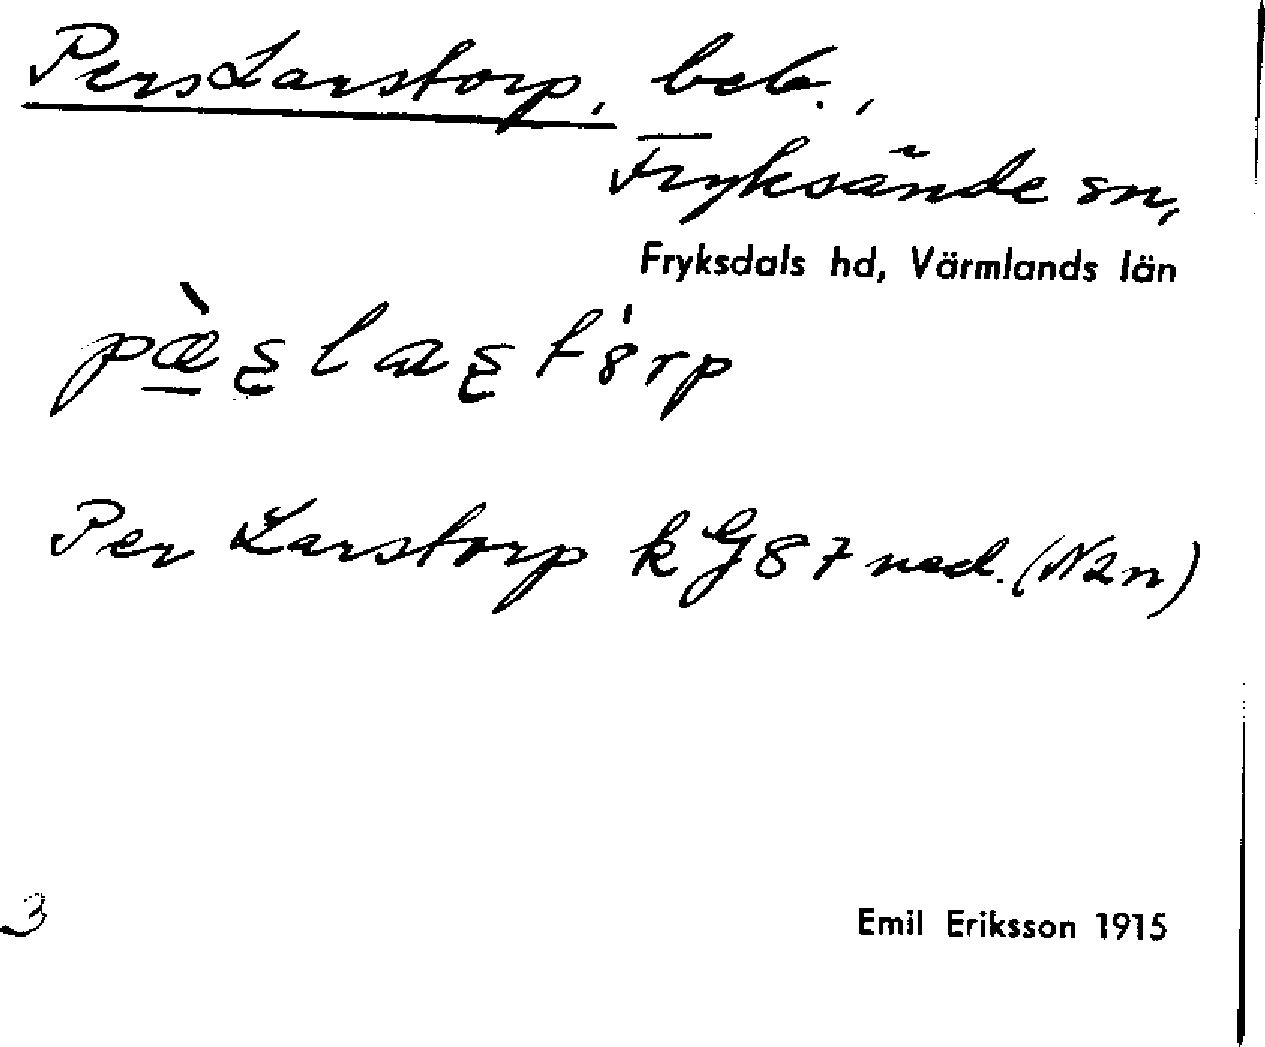 PersLarstorp, beb.,
Fryksände sn,
Fryksdals hd, Värmlands län
Per Larstorp k G 87 ned. (N2n)
3
Emil Eriksson 1915